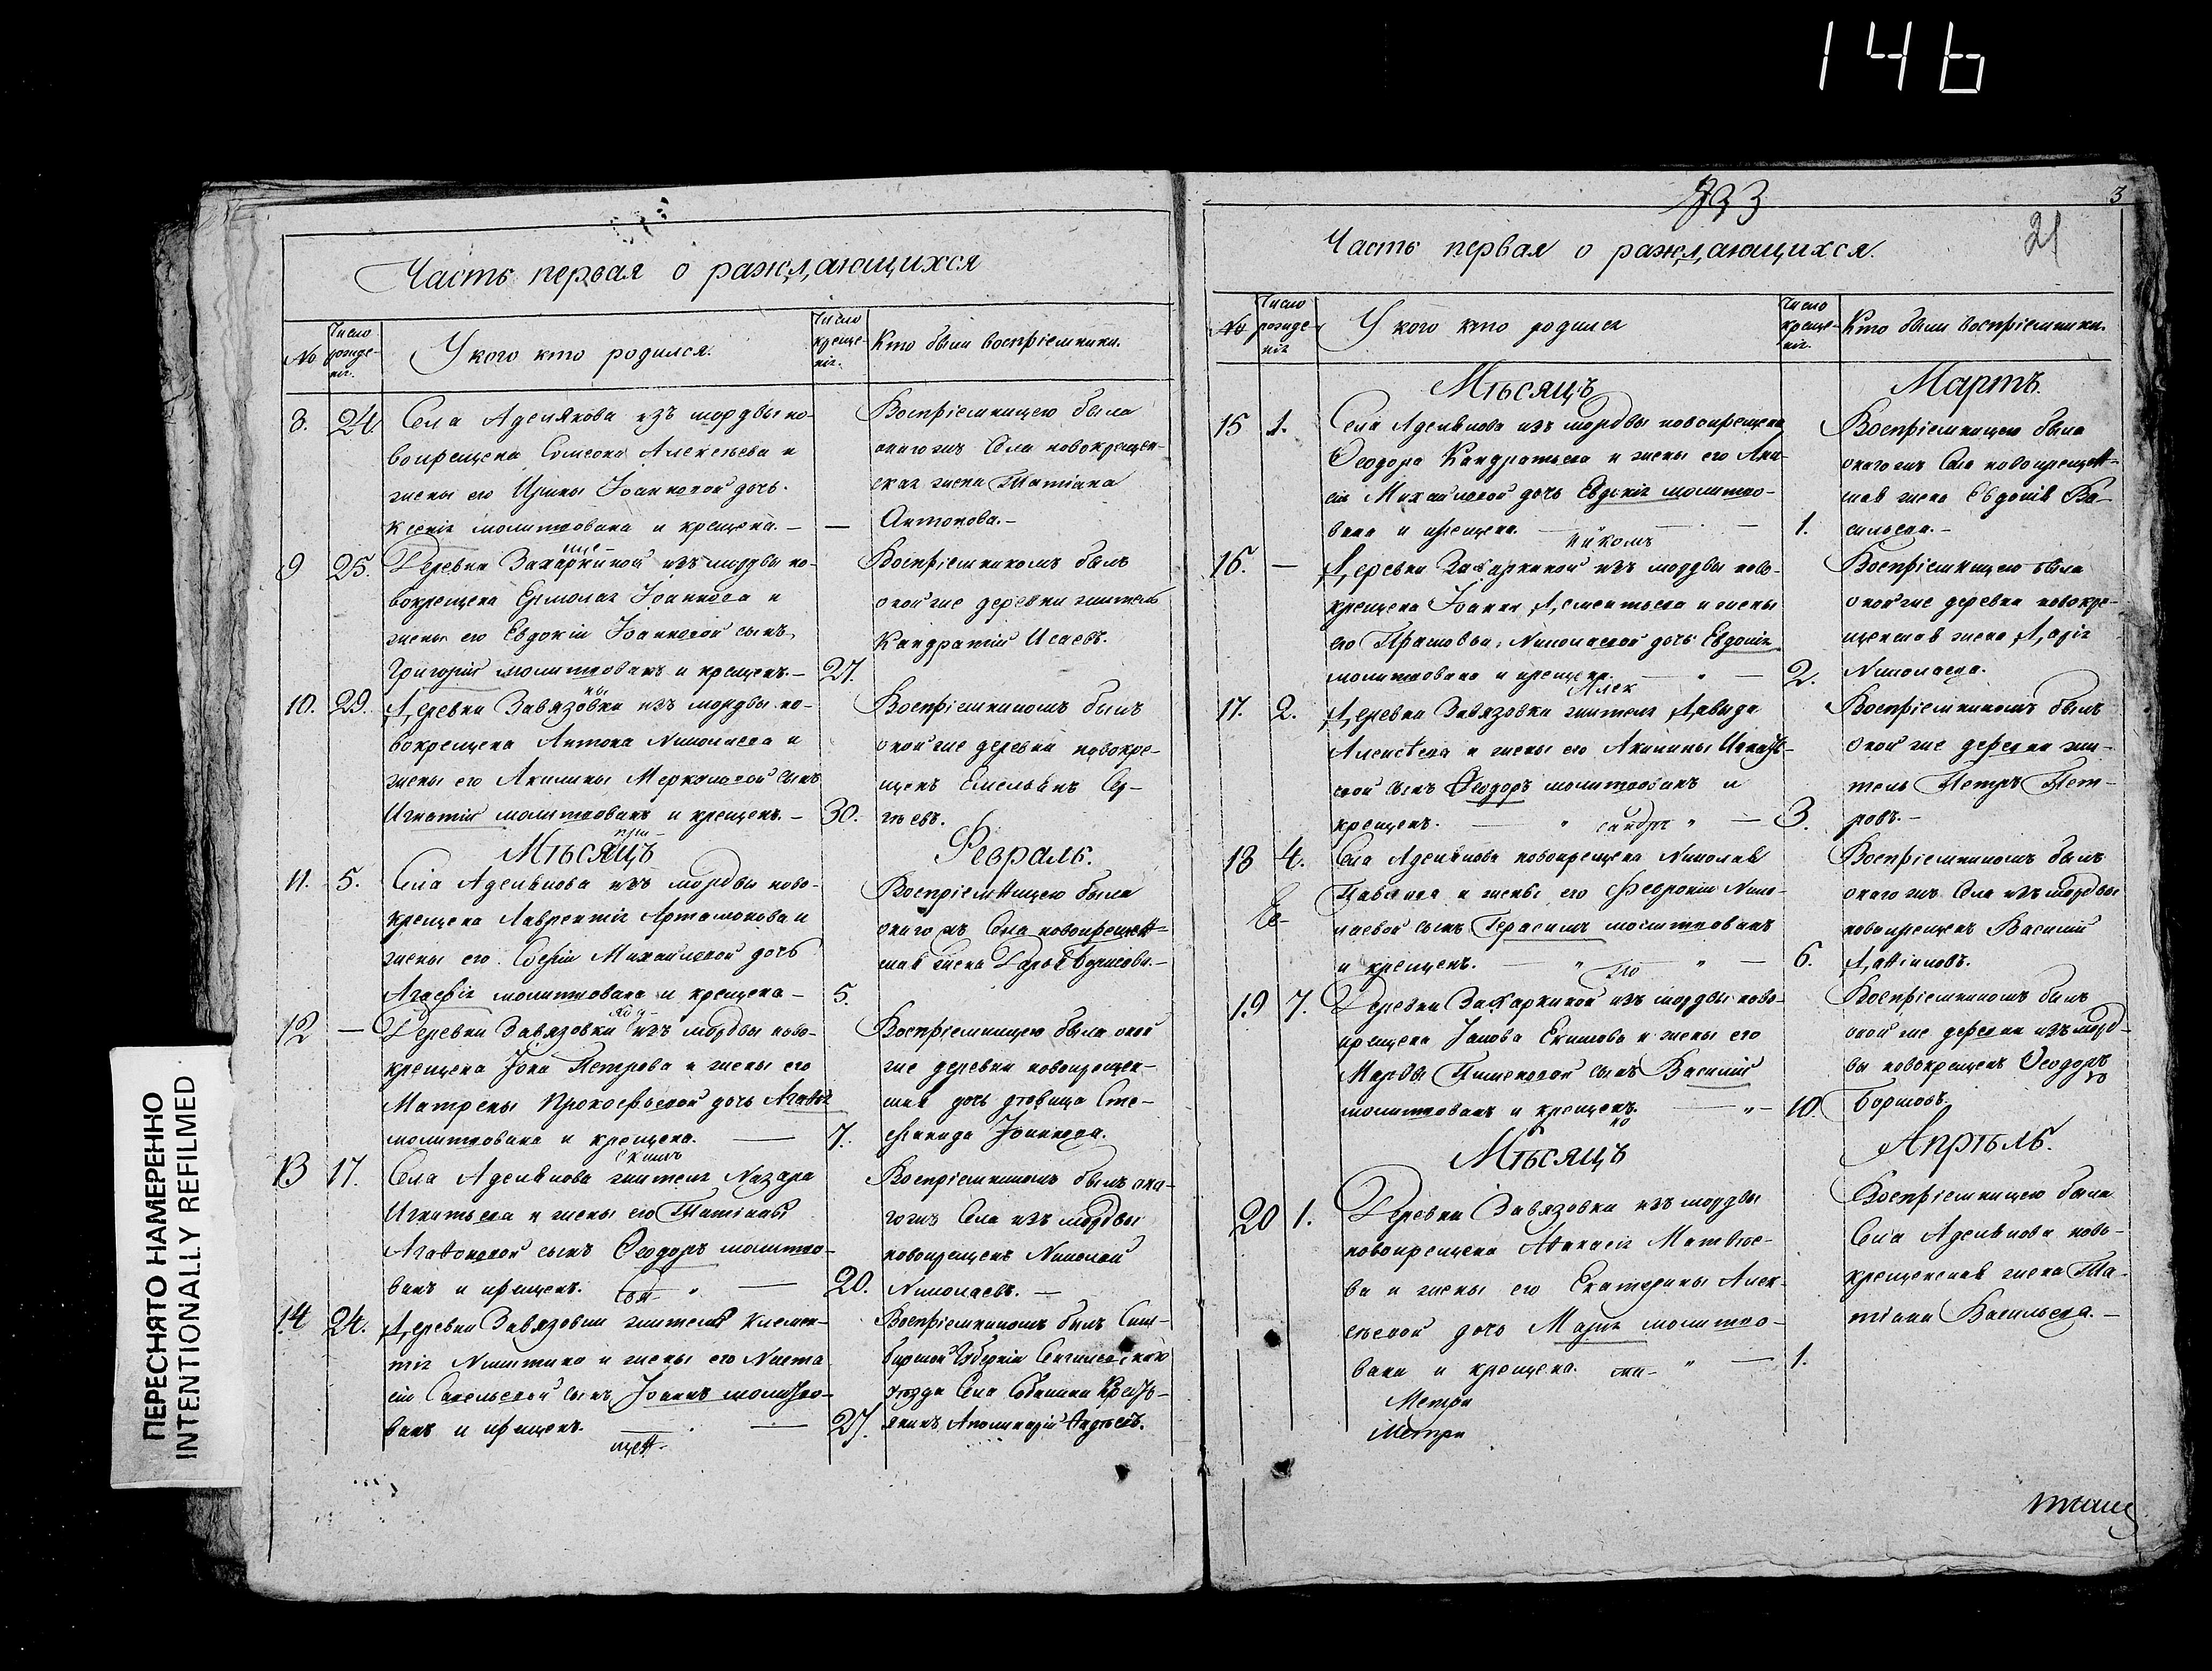 146
Часть первая о раждающихся
№
Число рожде-нiя.
У кого кто родился.
Число креще-нiя.
Кто были воспрiемники.
8. 24. Села Аделякова изъ мордвы но-
вокрещена Симеона Алексѣева и
жены его Ирины Iоанновой дочь
Ксенiя молитвована и крещена. —
Воспрiемницею была
онагожъ Села новокрещен-
ская жена Татiана
Антонова. -
9 25. Деревни Захаркиной изъ мордвы но-
вокрещена Ермолая Iоаннова и
жены его Евдокiи Iоанновой сынъ
Григорiй молитвованъ и крещенъ. — 27.
Воспрiемникомъ былъ
оной же деревни житель
Кандратiй Исаевъ.
10. 29. Деревни Завязовки изъ мордвы но-
вокрещена Антона Николаева и
жены его Акилины Меркуловой сынъ
Игнатiй молитвованъ и крещенъ. — 30.
Воспрiемникомъ былъ
оной же деревни новокре-
щенъ Емельянъ Сер-
гѣевъ.
Мѣсяцъ Февраль.
11. 5. Села Аделякова изъ мордвы ново-
крещена Лаврентiя Артамонова и
жены его Софiи Михайловой дочь
Агафiя молитвована и крещена — 5.
Воспрiемницею была
онаго жъ Села новокрещен-
ная жена Дарья Борисова. —
12 — Деревни Завязовки изъ мордвы ново-
крещена Iона Петрова и жены его
Матрены Прокофьевой дочь Агафiя
молитвована и крещена. — 7.
Воспрiемницею была оной
же деревни новокрещен-
ная дочь девица Сте-
фанида Iоаннова.
13 17. Села Аделякова жителя Назара
Игнатьева и жены его Татiаны
Агафоновой сынъ Ѳеодоръ молитво-
ванъ и крещенъ. — 20.
Воспрiемникомъ былъ она-
гожъ Села изъ мордвы
новокрещенъ Николай
Николаевъ. —
14 24. Деревни Завязовки жителя Клемен-
тiя Никитина и жены его Наста
сiи Савельевой сынъ Iоаннъ молитво-
ванъ и крещенъ. — 27.
Воспрiемникомъ былъ Сим-
бирской Губернiи Сенгилеевскаго
уѣзда Села Собакина Кресть-
янинъ Аполинарiй Андреевъ.
щен-
ПЕРЕСНЯТО НАМЕРЕННО
INTENTIONALLY REFILMED
3
21
Часть первая о раждающихся.
№
Число рожде-нiя
У кого кто родился
Число креще-нiя.
Кто были воспрiемники.
Мѣсяцъ Мартъ.
15 1. Села Аделякова изъ мордвы новокрещена
Ѳеодора Кандратьева и жены его Ана-
сiи Михайловой дочь Евдокiя молитво-
вана и крещена. — 1.
Воспрiемницею была
онагожъ Села новокрещен-
ная жена Евдокiя Ва-
сильева. —
16. — Деревни Захаркиной изъ мордвы ново-
крещена Iоанна Дементьева и жены
его Прасковьи Николаевой дочь Евдокiя
молитвована и крещена. — 2.
Воспрiемницею была
оной же деревни новокре-
щенная жена Дарiя
Николаева.
17. 2. Деревни Завязовки жителя Давида
Алексѣева и жены его Акилины Игнатье-
вой сынъ Ѳеодоръ молитвованъ и
крещенъ. — 3.
Воспрiемникомъ былъ
Оной же деревни жи-
тель Петръ Пет-
ровъ. —
18 4. Села Аделякова новокрещена Николая
Павлова и жены его Февронiи Нико-
лаевой сынъ Герасимъ молитвованъ
и крещенъ. — 6.
Воспрiемникомъ былъ
онаго жъ Села изъ мордвы
новокрещенъ Василiй
19 7. Деревни Захаркиной изъ мордвы ново-
крещена Iакова Екимова и жены его
Марѳы Пименовой сынъ Василiй
молитвованъ и крещенъ. — 10.
Воспрiемникомъ былъ
оной же деревни изъ морд-
вы новокрещенъ Ѳеодоръ
Борисовъ.
Мѣсяцъ Апрѣль.
20 1. Деревни Завязовки изъ мордвы
новокрещена Аѳанасiя Матвѣе-
ва и жены его Екатерины Алек-
сѣевой дочь Марiя молитво-
вана и крещена. — 1.
Воспрiемницею была
Села Аделякова ново-
крещенская жена Та-
тiана Васильева. —
Метри
Метри